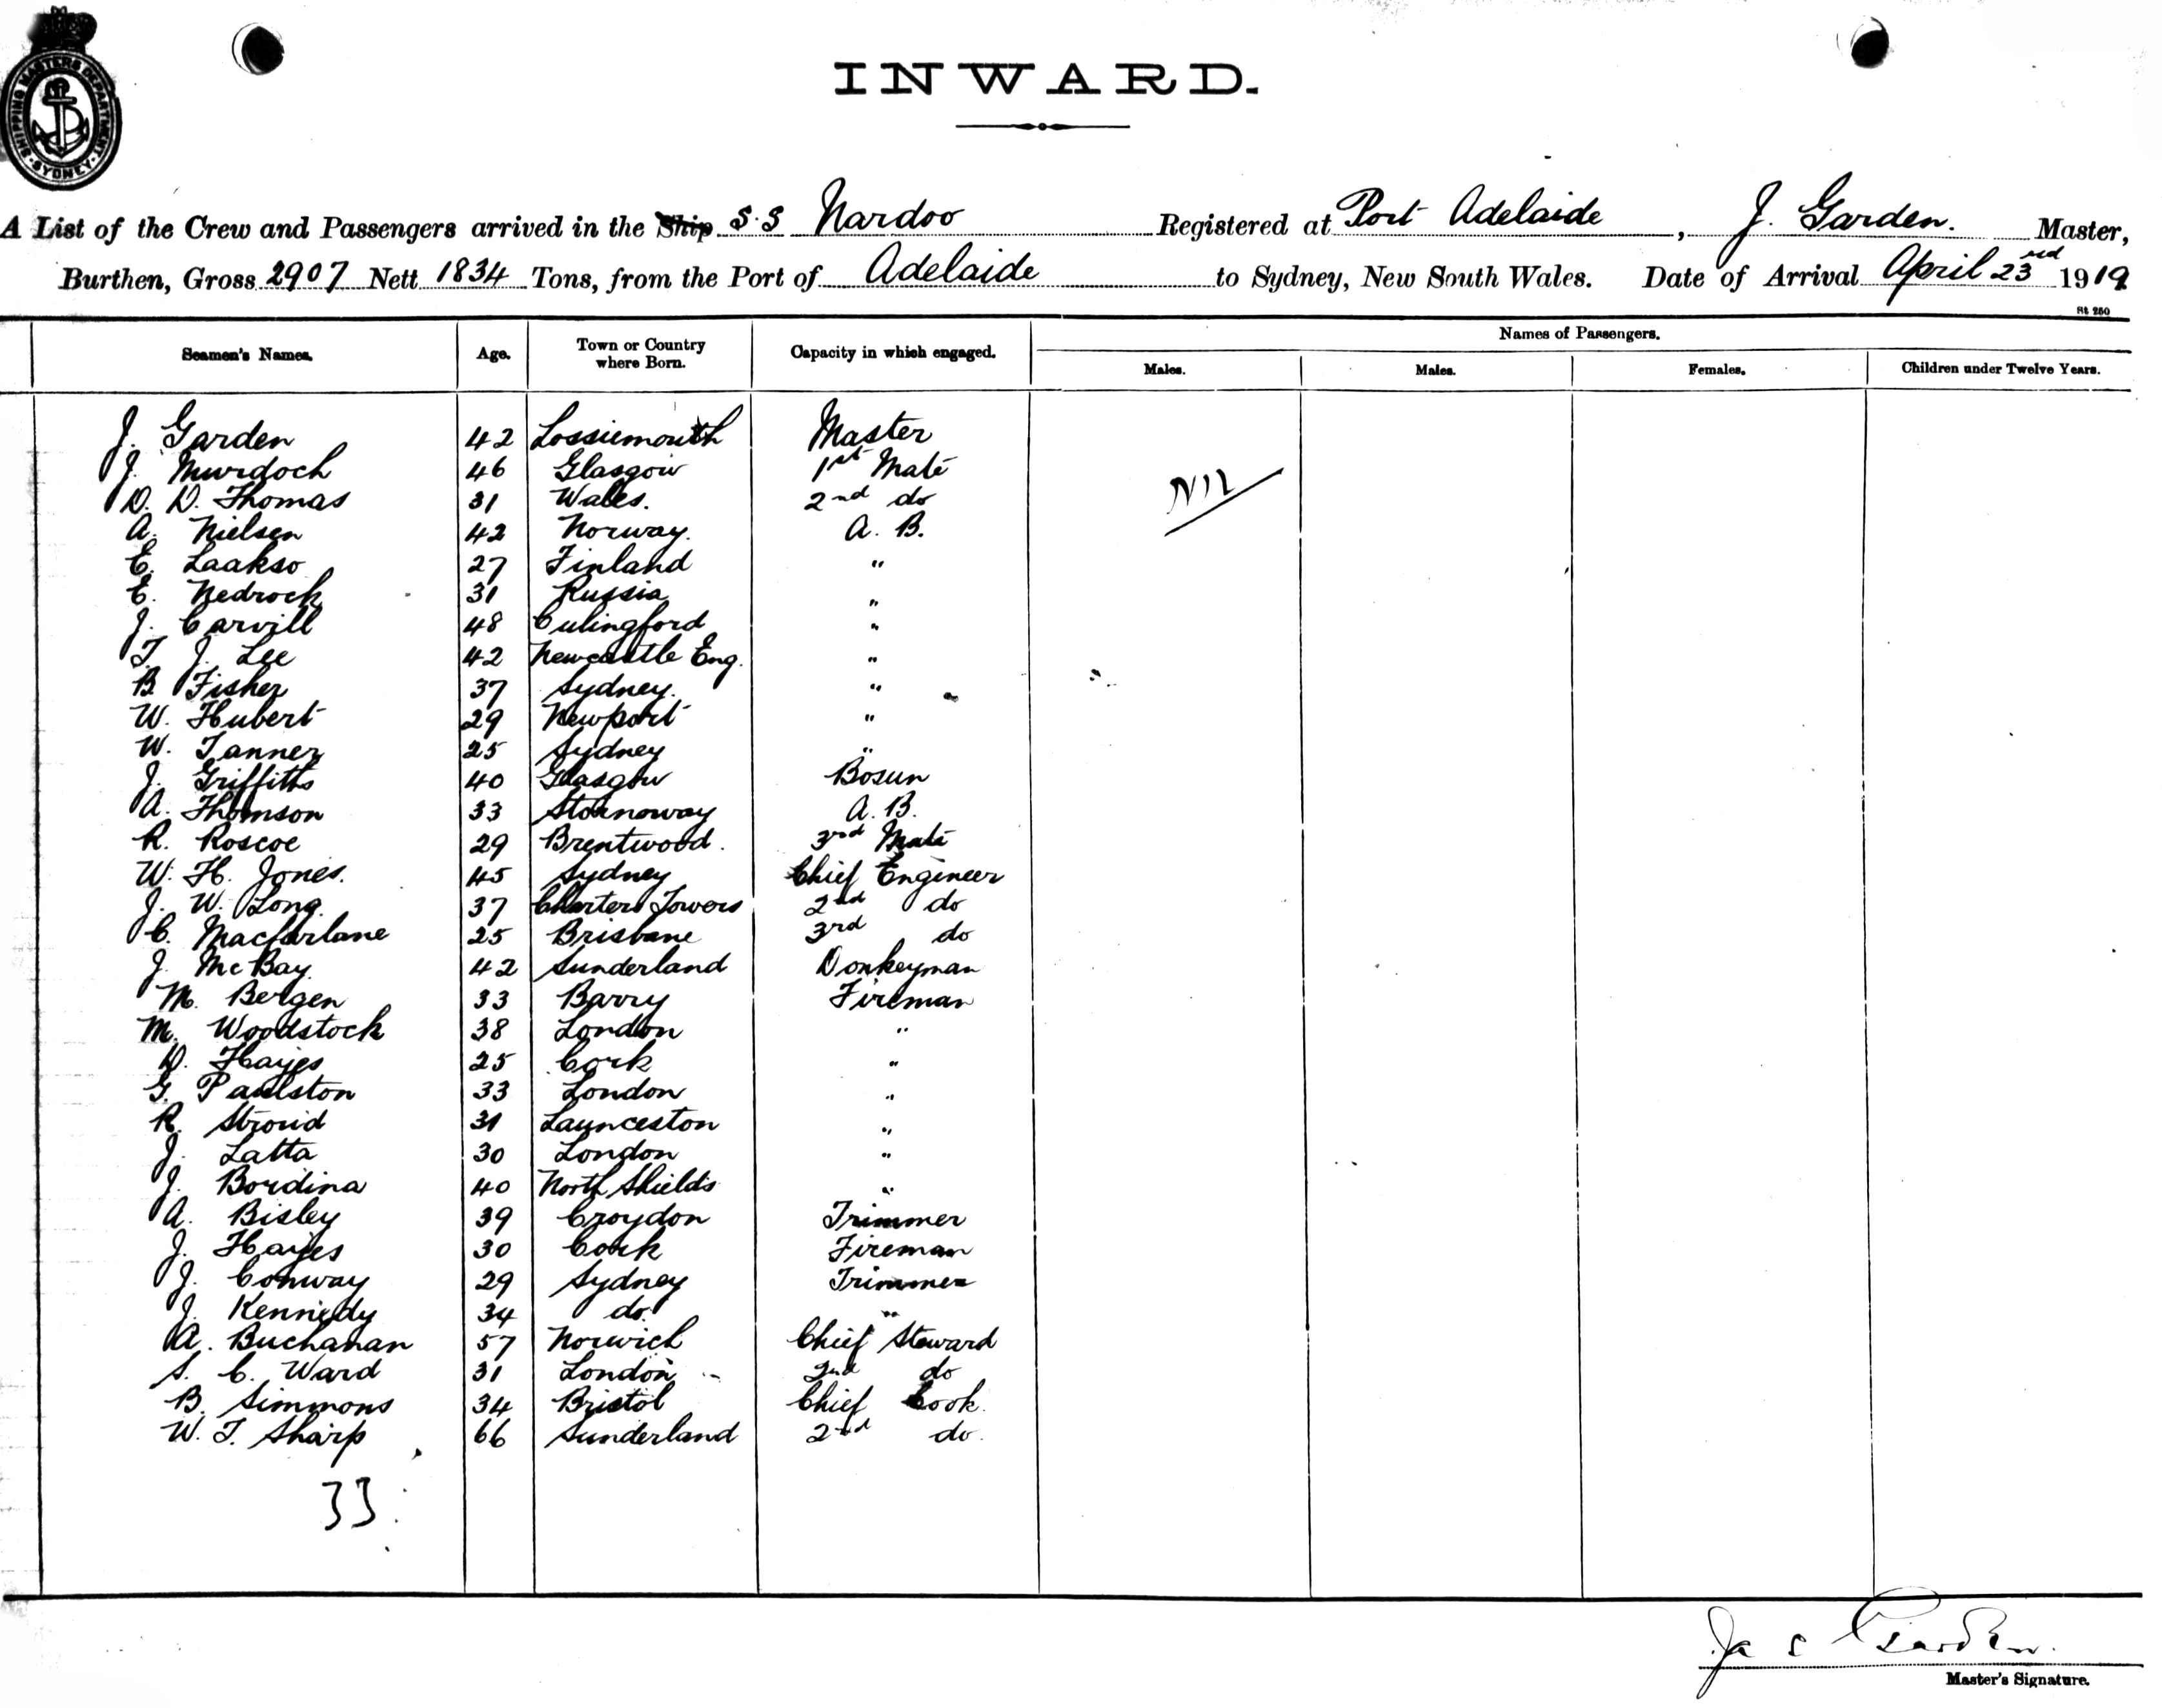 SHIPPING MASTERS DEPARTMENT
SYDNEY
INWARD.
A List of the Crew and Passengers arrived in the Ship S.S Nardoo Registered at Port Adelaide, J. Garden. Master,
Burthen, Gross 2907 Nett 1834 Tons, from the Port of Adelaide to Sydney, New South Wales. Date of Arrival April 23rd 1919
St 250
Seamen's Names. Age. Town or Country where Born. Capacity in which engaged. Names of Passengers.
Males. Males. Females. Children under Twelve Years.
J. Garden 42 Lossiemouth Master
J. Murdoch 46 Glasgow 1st Mate
D. D. Thomas 31 Wales. 2nd do
Nil
A. Nielsen 42 Norway. A. B.
E. Laakso 27 Finland "
E. Nedrock 31 Russia "
J. Carvill 48 Culingford "
T. J. Lee 42 Newcastle Eng. "
B Fisher 37 Sydney. "
W. Hubert 29 Newport "
W. Tanner 25 Sydney "
J. Griffiths 40 Glasgow Bosun
A. Thomson 33 Stornoway A. B.
R. Roscoe 29 Brentwood. 3rd Mate
W. H. Jones. 45 Sydney Chief Engineer
J. W. Long 37 Charters Towers 2nd do
C. Macfarlane 25 Brisbane 3rd do
J. McBay 42 Sunderland Donkeyman
M. Bergen 33 Barry Fireman
M. Woodstock 38 London "
D. Hayes 25 Cork "
G. Paulston 33 London "
R. Stroud 31 Launceston "
J. Latta 30 London "
J. Bordina 40 North Shields "
A. Bisley 39 Croydon Trimmer
J. Hayes 30 Cork Fireman
J. Conway 29 Sydney Trimmer
J. Kennedy 34 do. "
A. Buchanan 57 Norwich Chief Steward
S. C. Ward 31 London 2nd do
B. Simmons 34 Bristol Chief Cook.
W. T. Sharp 66 Sunderland 2nd do.
33
Jas Garden.
Master's Signature.